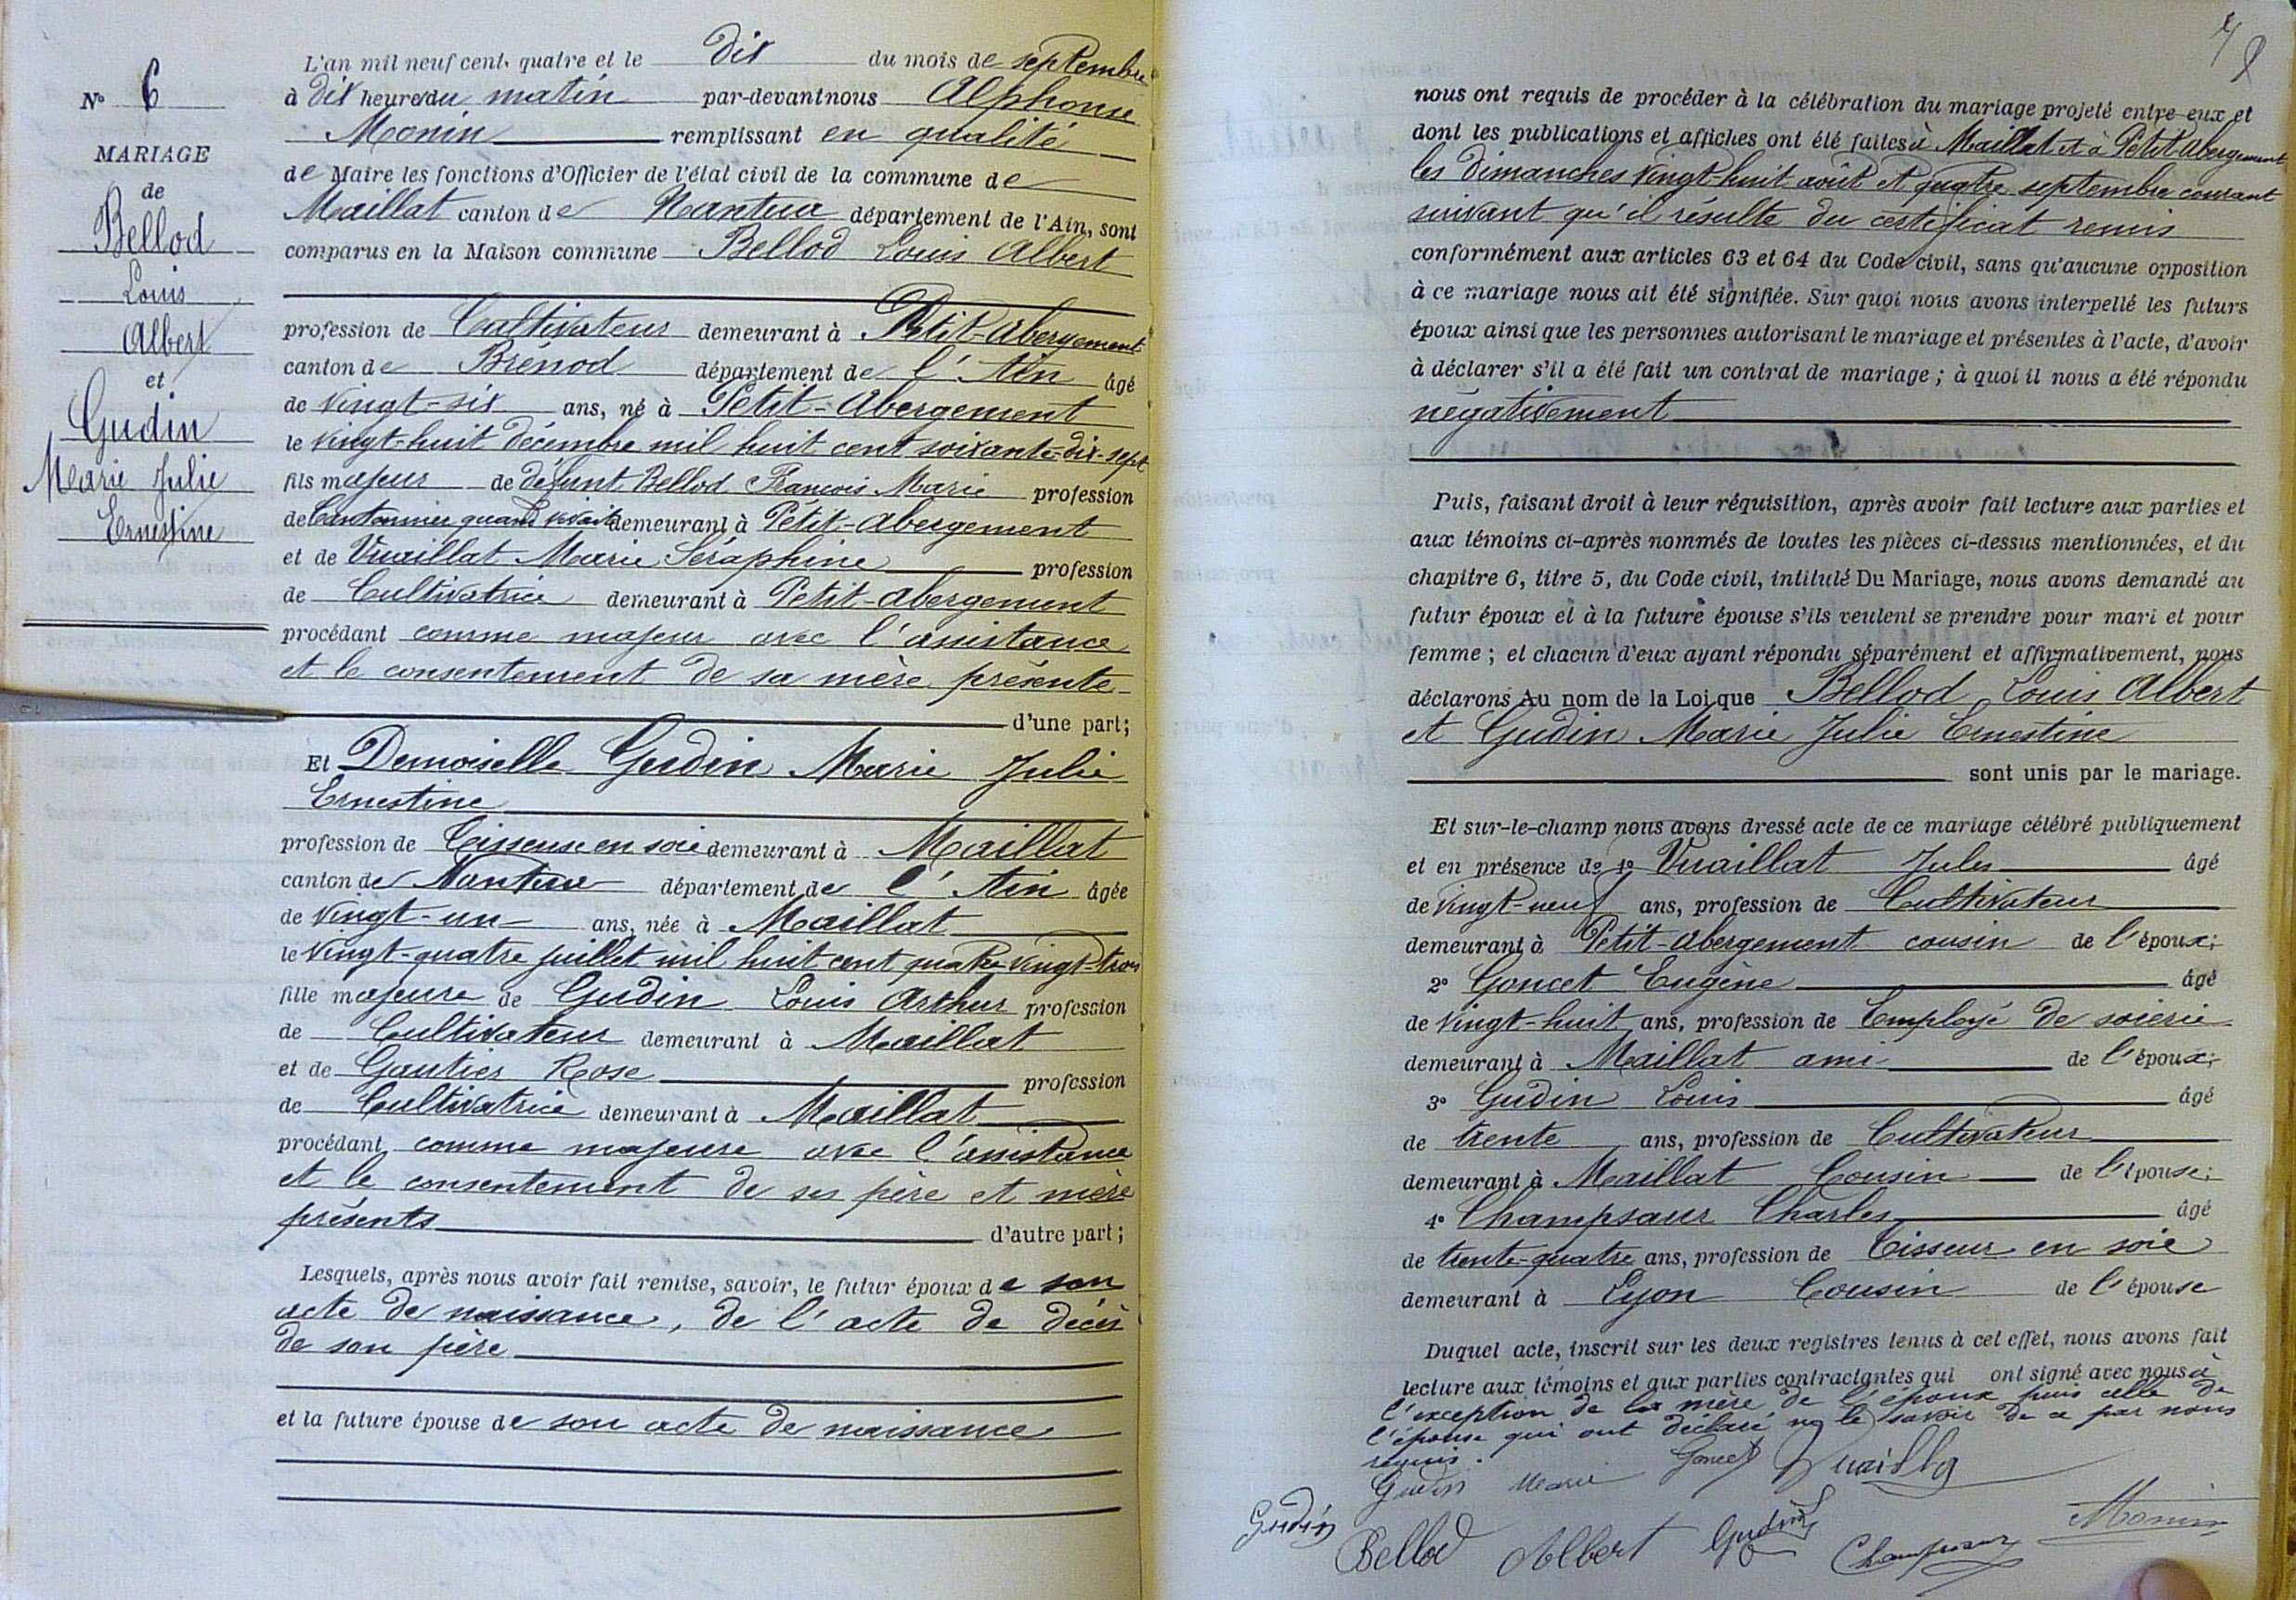 N° 6
MARIAGE
de
Bellod
Louis
Albert
et
Gudin
Marie Julie
Ernestine
L'an mil neuf cent quatre et le dix du mois de septembre
à dix heures du matin par-devant nous Alphonse
Monin remplissant en qualité
de Maire les fonctions d'Officier de l'état civil de la commune de
Maillat canton de Nantua département de l'Ain, sont
comparus en la Maison commune Bellod Louis Albert
profession de Cultivateur demeurant à Petit-Abergement
canton de Brénod département de l'Ain âgé
de vingt-six ans, né à Petit-Abergement
le vingt-huit décembre mil huit cent soixante-dix-sept
fils majeur de défunt Bellod François Marie profession
de Cantonnier quand vivait demeurant à Petit-Abergement
et de Vuaillat Marie Séraphine profession
de Cultivatrice demeurant à Petit-Abergement
procédant comme majeur avec l'assistance
et le consentement de sa mère présente
d'une part;
Et Demoiselle Gudin Marie Julie
Ernestine
profession de Tisseuse en soie demeurant à Maillat
canton de Nantua département de l'Ain âgée
de vingt-un ans, née à Maillat
le vingt-quatre juillet mil huit cent quatre-vingt-trois
fille majeure de Gudin Louis Arthur profession
de Cultivateur demeurant à Maillat
et de Gautier Rose profession
de Cultivatrice demeurant à Maillat
procédant comme majeure avec l'assistance
et le consentement de ses père et mère
présents d'autre part;
Lesquels, après nous avoir fait remise, savoir, le futur époux de son
acte de naissance, de l'acte de décès
de son père
et la future épouse de son acte de naissance
nous ont requis de procéder à la célébration du mariage projeté entre eux et
dont les publications et affiches ont été faites à Maillat et à Petit Abergement
les dimanches vingt huit août et quatre septembre courant
suivant qu'il résulte du certificat remis
conformément aux articles 63 et 64 du Code civil, sans qu'aucune opposition
à ce mariage nous ait été signifiée. Sur quoi nous avons interpellé les futurs
époux ainsi que les personnes autorisant le mariage et présentes à l'acte, d'avoir
à déclarer s'il a été fait un contrat de mariage ; à quoi il nous a été répondu
négativement
Puis, faisant droit à leur réquisition, après avoir fait lecture aux parties et
aux témoins ci-après nommés de toutes les pièces ci-dessus mentionnées, et du
chapitre 6, titre 5, du Code civil, intitulé Du Mariage, nous avons demandé au
futur époux et à la future épouse s'ils veulent se prendre pour mari et pour
femme ; et chacun d'eux ayant répondu séparément et affirmativement, nous
déclarons Au nom de la Loi que Bellod Louis Albert
et Gudin Marie Julie Ernestine
sont unis par le mariage.
Et sur-le-champ nous avons dressé acte de ce mariage célébré publiquement
et en présence de 1° Vuaillat Jules âgé
de vingt-neuf ans, profession de Cultivateur
demeurant à Petit-Abergement cousin de l'époux;
2° Goncet Eugène âgé
de vingt-huit ans, profession de Employé de soierie
demeurant à Maillat ami de l'époux;
3° Gudin Louis âgé
de trente ans, profession de Cultivateur
demeurant à Maillat Cousin de l'épouse;
4° Champsaur Charles âgé
de trente-quatre ans, profession de Tisseur en soie
demeurant à Lyon Cousin de l'épouse
Duquel acte, inscrit sur les deux registres tenus à cet effet, nous avons fait
lecture aux témoins et aux parties contractantes qui ont signé avec nous à
l'exception de la mère de l'époux puis celle de
l'épouse qui ont déclaré ne le savoir de ce par nous
requis.
Gudin Marie Goncet
Gudin Bellod Albert Gudin Champsaur Monin